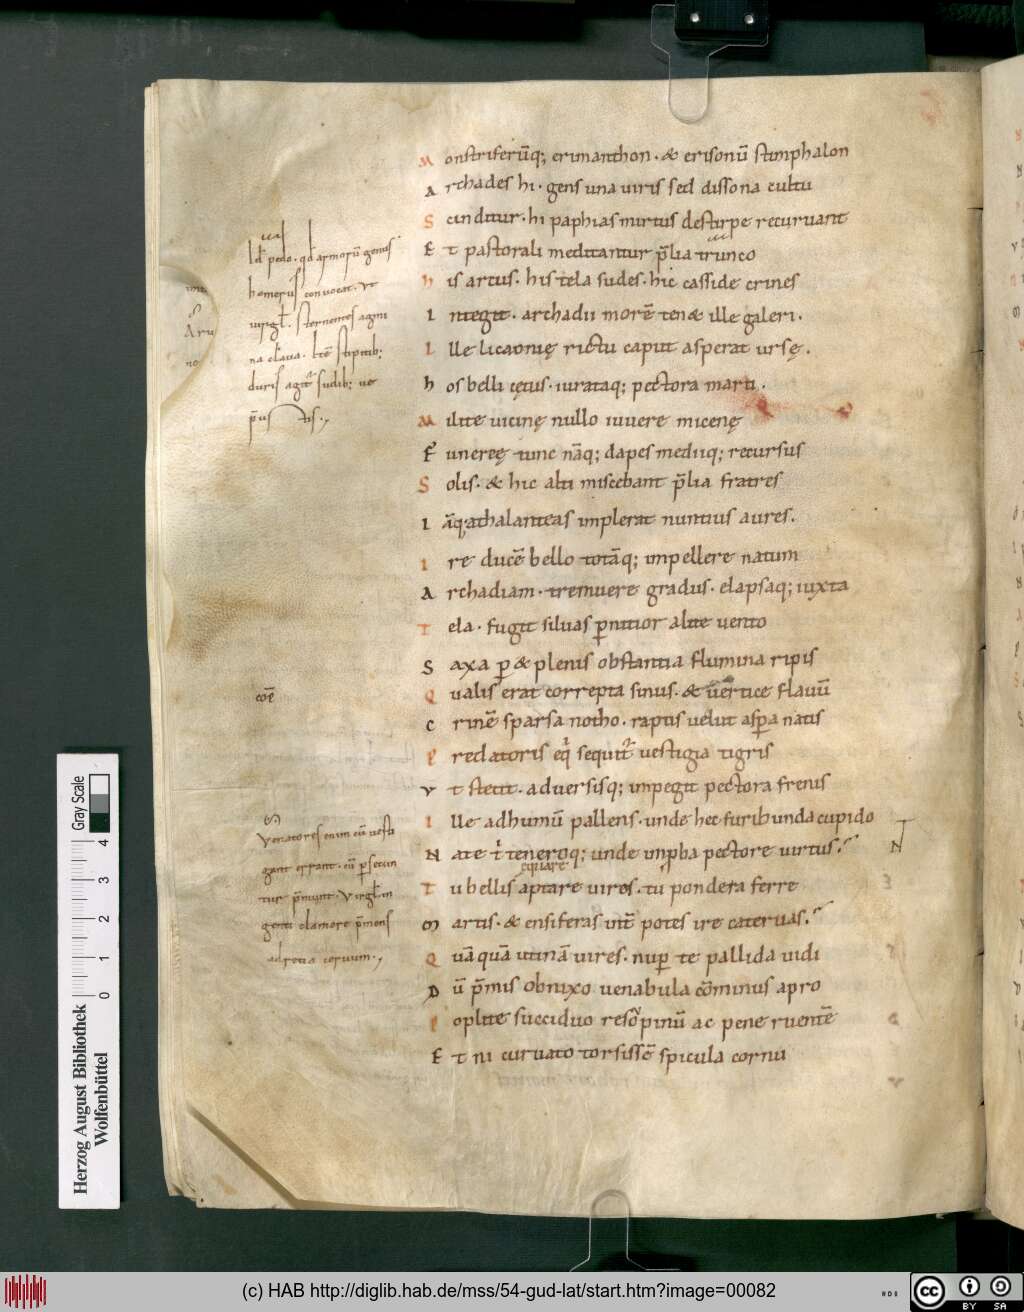 Monstriferūq; erimanthon · & erisonū stimphalon
Archades hi · gens una uiris sed dissona cultu
Scinditur · hi paphias mirtus destirpe recuruant
Et pastorali meditantur p̄lia trunco
his artus · his tela sudes · hic casside crines
Integit · archadii morē tenæ ille galeri .
Ille licaonię rictu caput asperat ursę .
hos belli cętus · iurataq; pectora marti .
Milite uicinę nullo iuuere micenę
Funereę tunc nāq; dapes mediiq; recursus
Solis · & hic alti miscebant p̄lia fratres
Iāq, athalanteas implerat nuntius aures .
Ire ducē bello totāq; impellere natum
Archadiam · tremuere gradus · elapsaq; iuxta
Tela · fugit siluas pnitior alite uento
Saxa p & plenis obstantia flumina ripis
Qualis erat correpta sinus · & uertice flauū
Crinē sparsa notho · raptis uelut aspa natis
Predatoris eq̇ sequit᷑ uestigia tigris
Vt stetit · aduersisq; impegit pectora frenis
Ille adhumū pallens · unde hec furibunda cupido
Nate t̄ teneroq; unde impba pectore uirtus .
equare
Tu bellis aptare uiros · tu pondera ferre
Martis · & ensiferas int̄ potes ire cateruas .
Quāquā utinā uires · nup te pallida uidi
Dū p̄mis obnixo uenabula cōminus apro
Poplite succiduo resoͮpinū ac pene ruentē
Et ni curuato torsissē spicula cornu
homerus conuocat · Vt
uirgł . sternentes agmi
na claua · 
duris agit᷑ sudib; ue
Venatores enim cū uesti
gant errant · cū psecun
tur p̄munt · Virgł in
genti clamore p̄mens
adretia ceruum .,
N
0 1 2 3 4
Gray Scale
Herzog August Bibliothek
Wolfenbüttel
(c) HAB http://diglib.hab.de/mss/54-gud-lat/start.htm?image=00082
cc BY SA